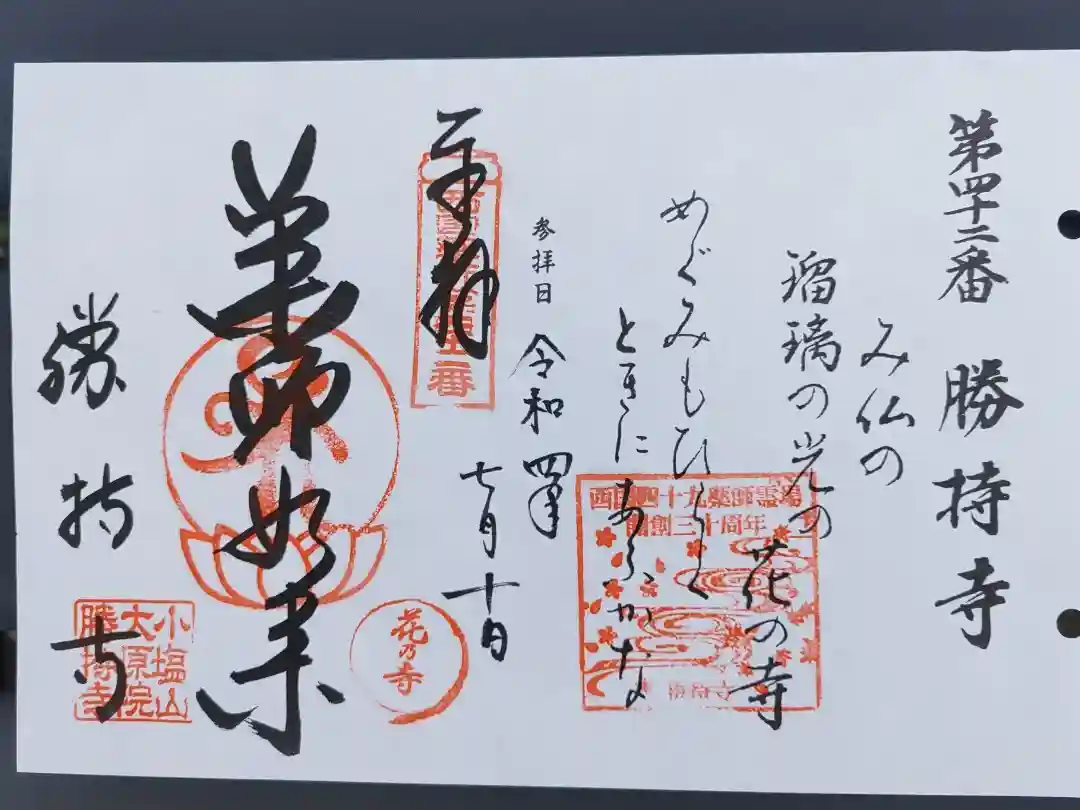 第四十二番 勝持寺
み仏の
瑠璃の光の 花の寺
めぐみもひらく
ときにあらかな
参拝日 令和四年
七月十日
奉拝
薬師如来
勝持寺
西国四十九薬師霊場
開創三十周年
花乃寺
小塩山
大原院
勝持寺